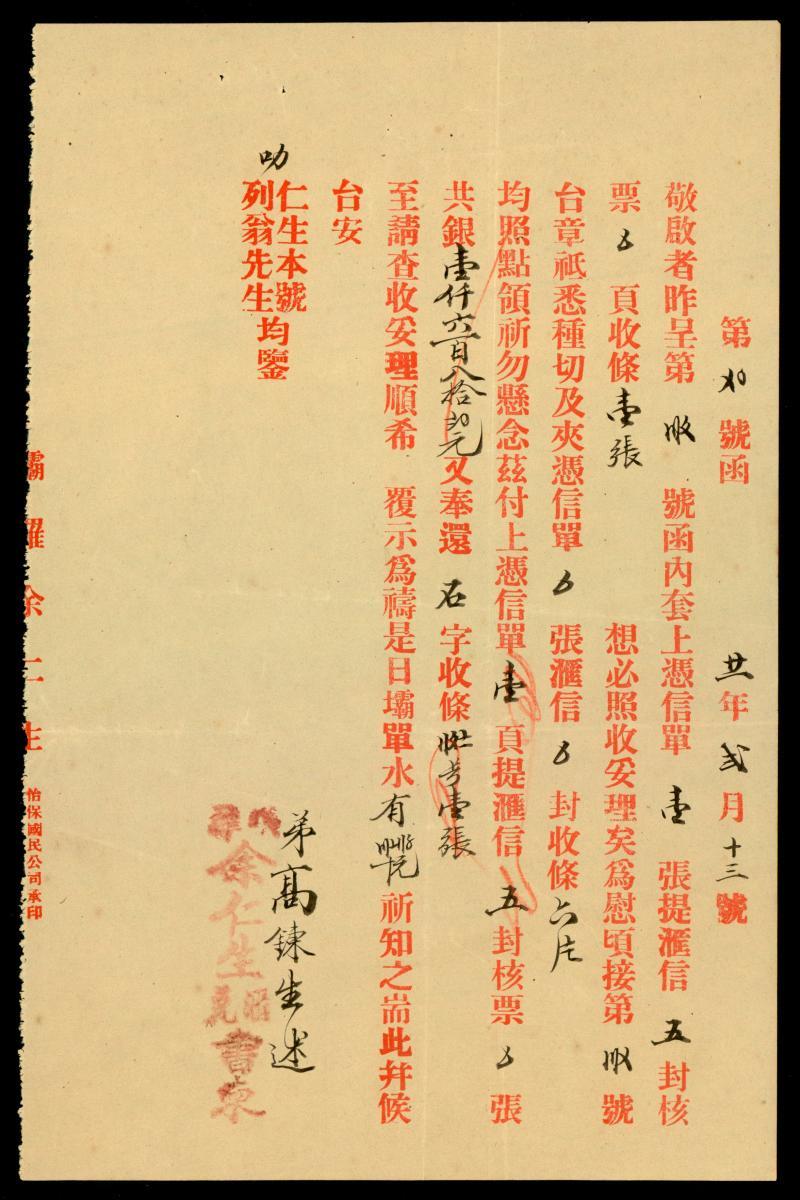 第 號函 廿一年弍月十三號
敬啟者昨呈第 號函內套上憑信單壹張提滙信五封核
票 頁收條壹張 想必照收妥理矣為慰頃接第 號
台章祗悉種切及夾憑信單 張滙信 封收條六片
均照點領祈勿懸念茲付上憑信單壹頁提滙信五封核票 張
共銀壹仟六百八拾 元又奉還石字收條 壹張
至請查收妥理順希 覆示為禱是日壩單水有 祈知之耑此幷候
台安
叻仁生本號
列翁先生均鑒
弟高鍊生述
余仁生 書柬
壩羅余仁生
怡保國民公司承印